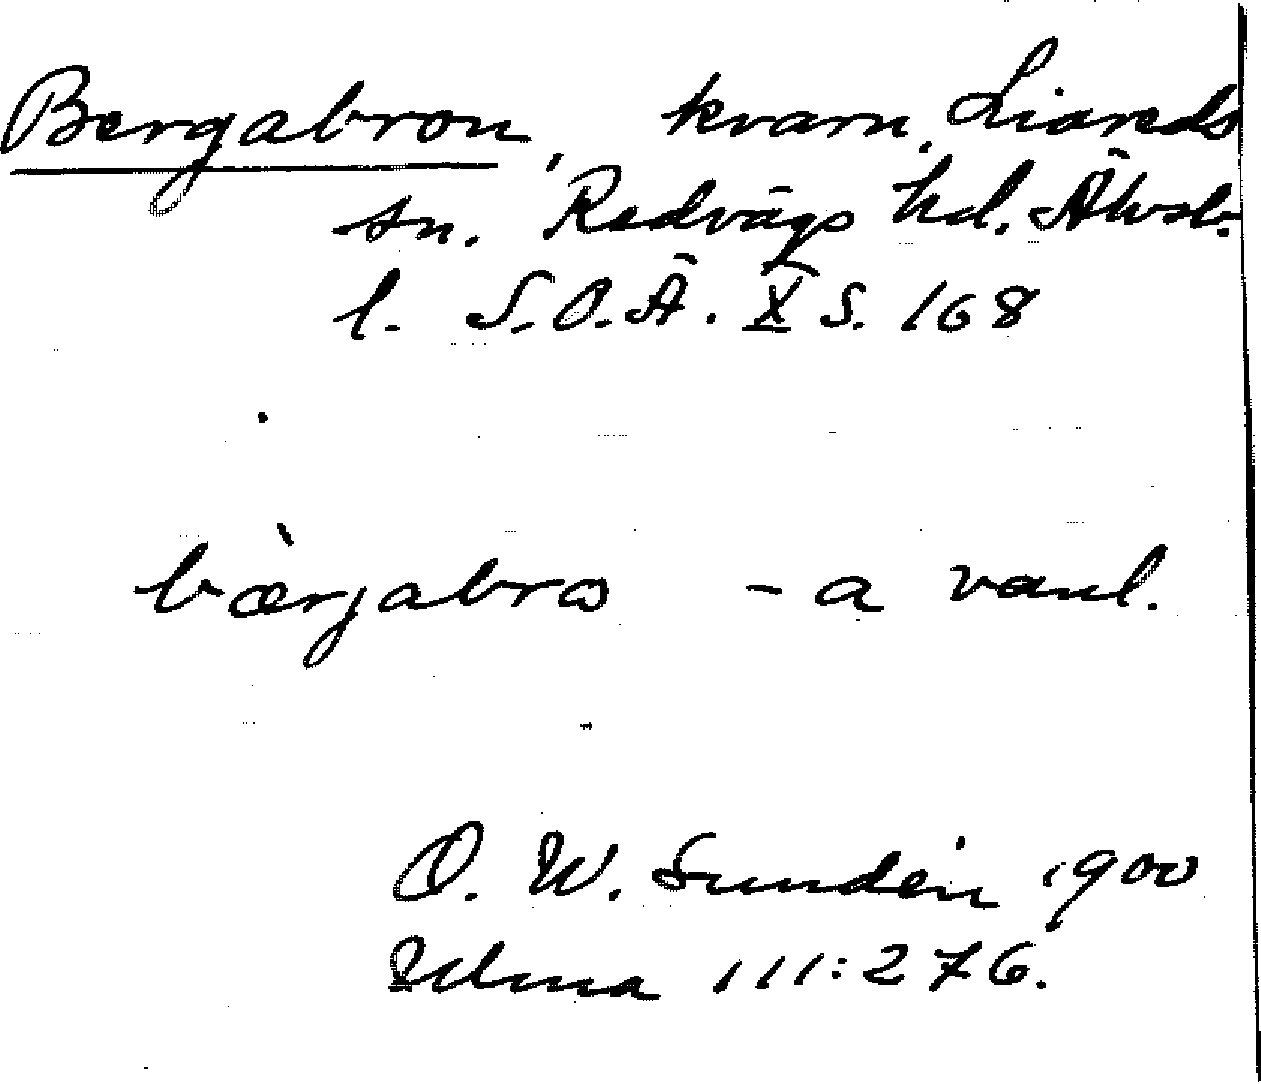 Bergabron, kvarn, Liareds
sn. Redvägs hd. Älvsb.
l. S.O.Ä. X s. 168
bærjabrω -a vanl.
O. W. Sundén 1900
Ulma 111:276.